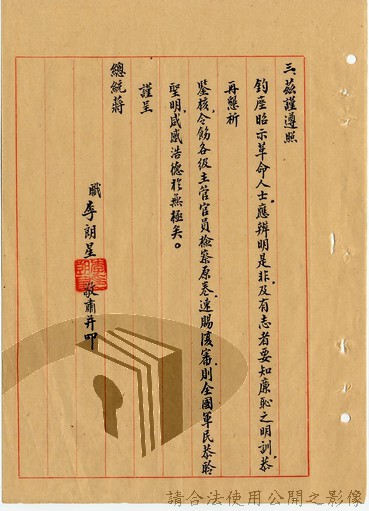 三、茲謹遵照
鈞座昭示革命人士.應辨明是非.及有志者要知廉恥之明訓.恭
再懇祈
鑒核.令飭各級主管官員檢察原卷.速賜復審.則全國軍民恭聆
聖明.咸感浩德於無極矣。
謹呈
總統蔣
職 李朗星 敬肅并叩
請合法使用公開之影像